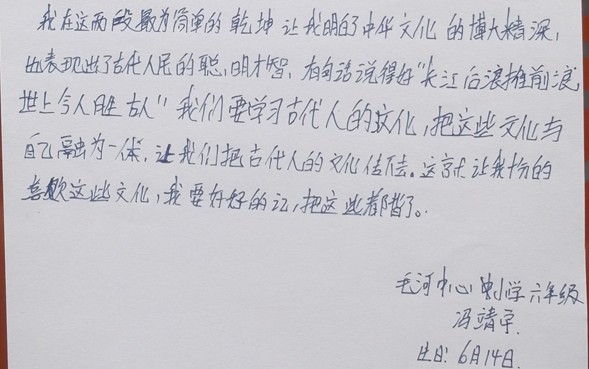 我在这两段最为简单的乾坤让我明白了中华文化的博大精深,
也表现出了古代人民的聪明才智,有句话说得好"长江后浪推前浪
世上今人胜古人"我们要学习古代人的文化,把这些文化与
自己融为一体,让我们把古代人的文化传下去。这才让我十分的
喜欢这些文化,我要好好的记,把这些都背了。
毛河中心小学六年级
冯靖宇.
生日:6月14日.